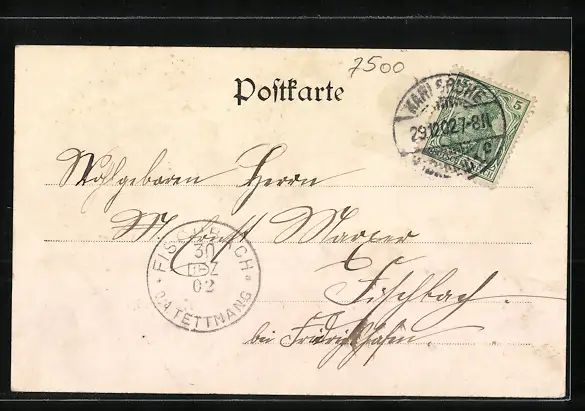 7500
Postkarte
5
KARLSRUHE
29.12.02.7-8N
c
Wohlgeboren Herrn
Marxer
FISCHBACH
30 DEZ
02
O.A. TETTNANG
Fischbach
bei Friedrichshafen